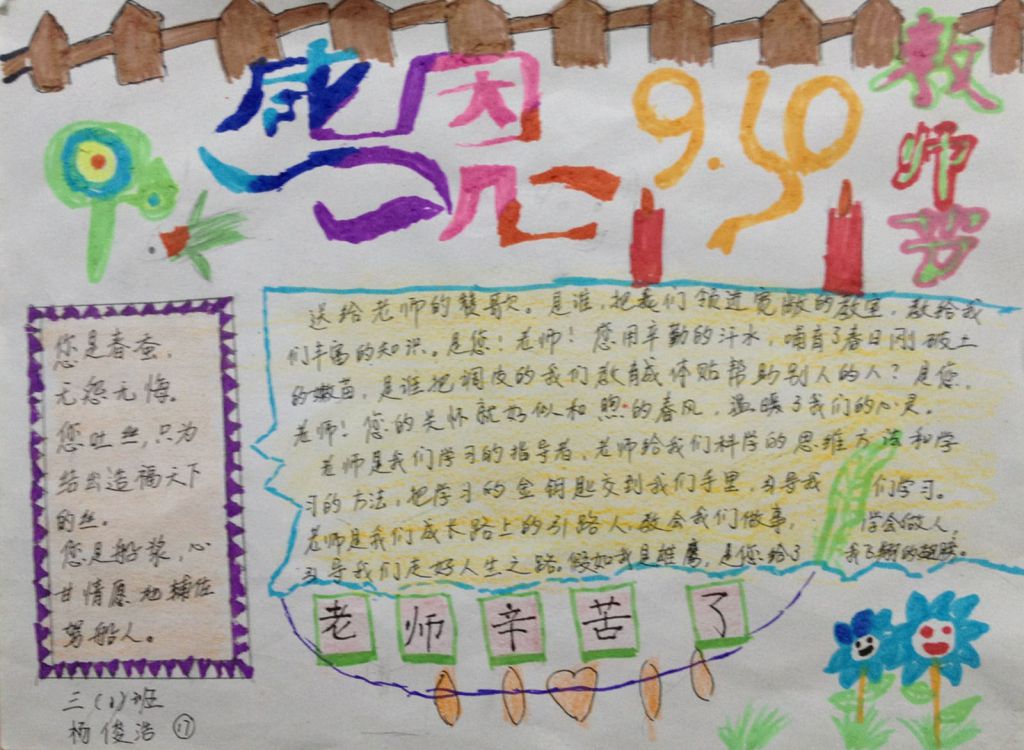 感恩 9.10
教师节
您是春蚕，
无怨无悔。
您吐丝，只为
结出造福天下
的丝。
您是船桨，心
甘情愿地辅佐
驾船人。
三(1)班
杨俊浩 ⑰
送给老师的赞歌。是谁，把我们领进宽敞的教室，教给我
们丰富的知识。是您！老师！您用辛勤的汗水，哺育了春日刚破土
的嫩苗，是谁把调皮的我们教育成体贴帮助别人的人？是您，
老师！您的关怀就好似和煦的春风，温暖了我们的心灵。
老师是我们学习的指导者，老师给我们科学的思维方法和学
习的方法，把学习的金钥匙交到我们手里，引导我们学习。
老师是我们成长路上的引路人，教会我们做事，学会做人，
引导我们走好人生之路。假如我是雄鹰，是您给了我飞翔的翅膀。
老师辛苦了